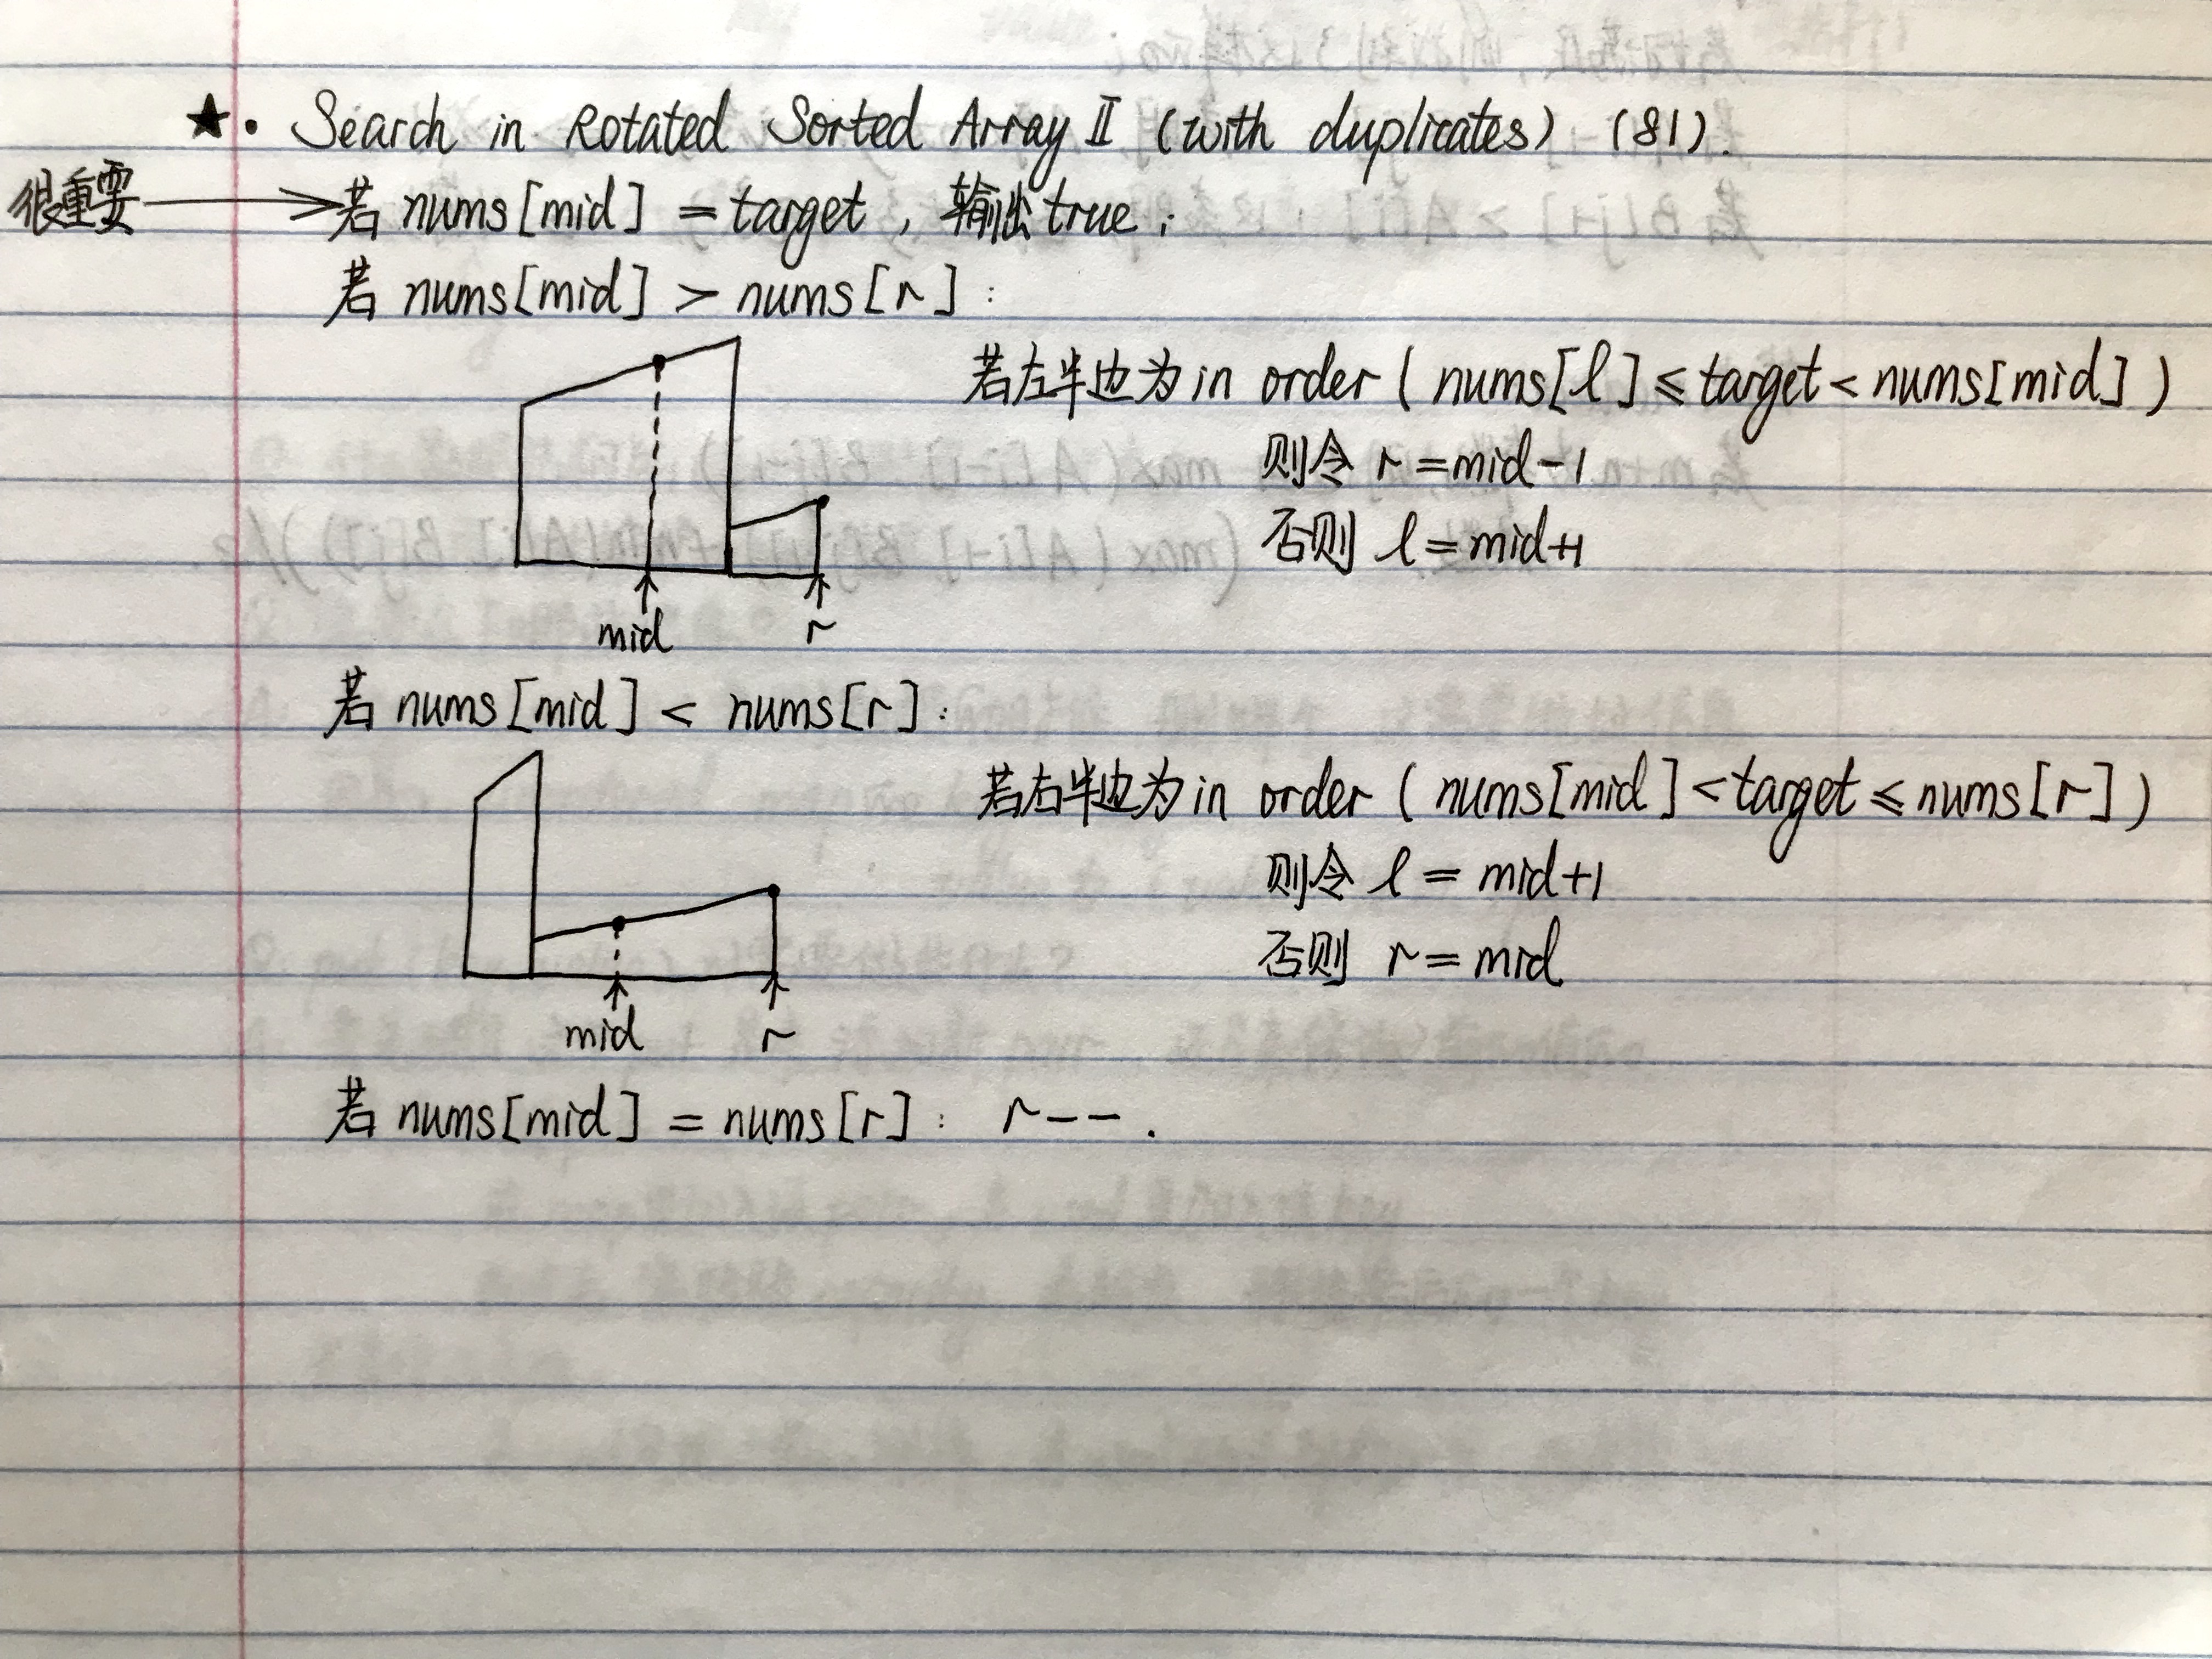 ★. Search in Rotated Sorted Array II (with duplicates) (81).
很重要 → 若 nums[mid] = target, 输出 true;
若 nums[mid] > nums[r]:
若左半边为 in order (nums[l] ≤ target < nums[mid])
则令 r = mid-1
否则 l = mid+1
mid r
若 nums[mid] < nums[r]:
若右半边为 in order (nums[mid] < target ≤ nums[r])
则令 l = mid+1
否则 r = mid
mid r
若 nums[mid] = nums[r]: r--.